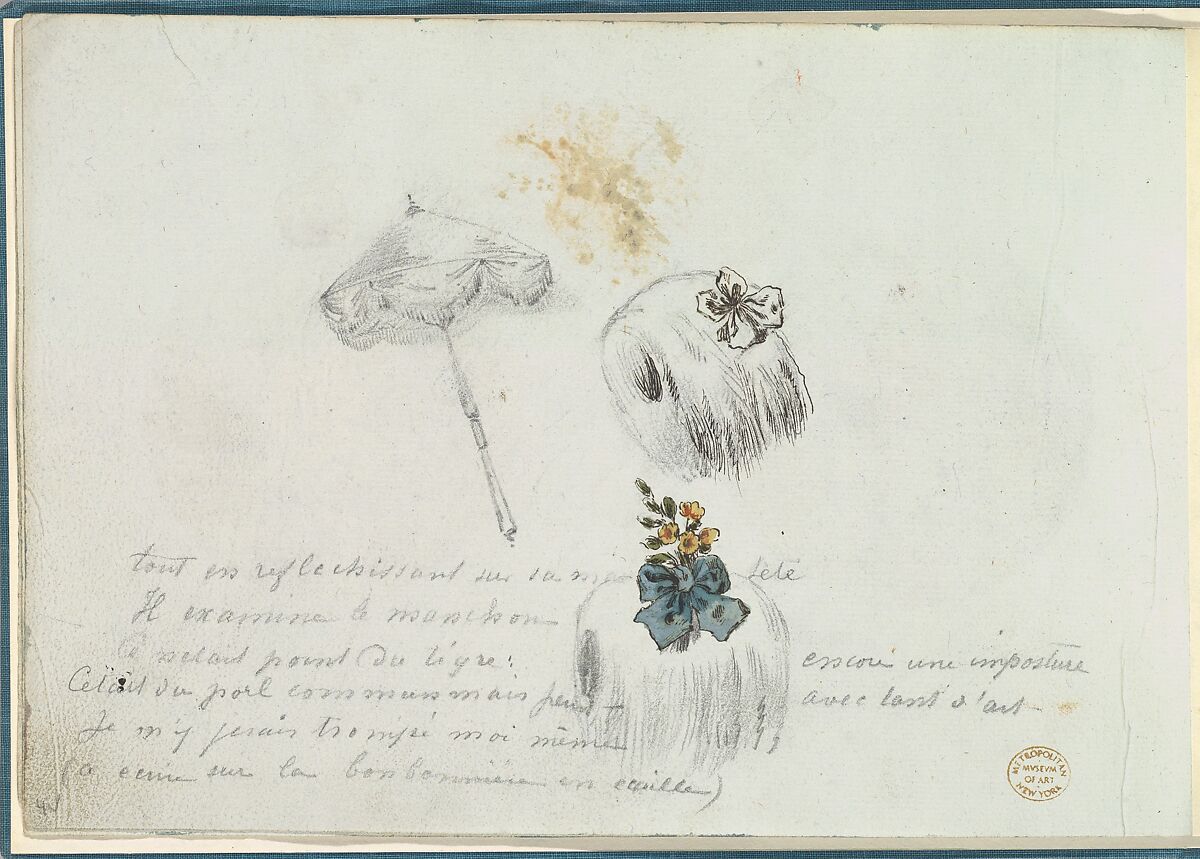 tout en reflechissant sur sa
Il examine le manchon
Ce n'etait point du tigre: encore une imposture
C'etait du poil commun mais peint avec tant d'art
Je m'y serais trompé moi même
(a ecrire sur la bonbonniere en ecaille)
METROPOLITAN
MVSEVM
OF ART
NEW YORK